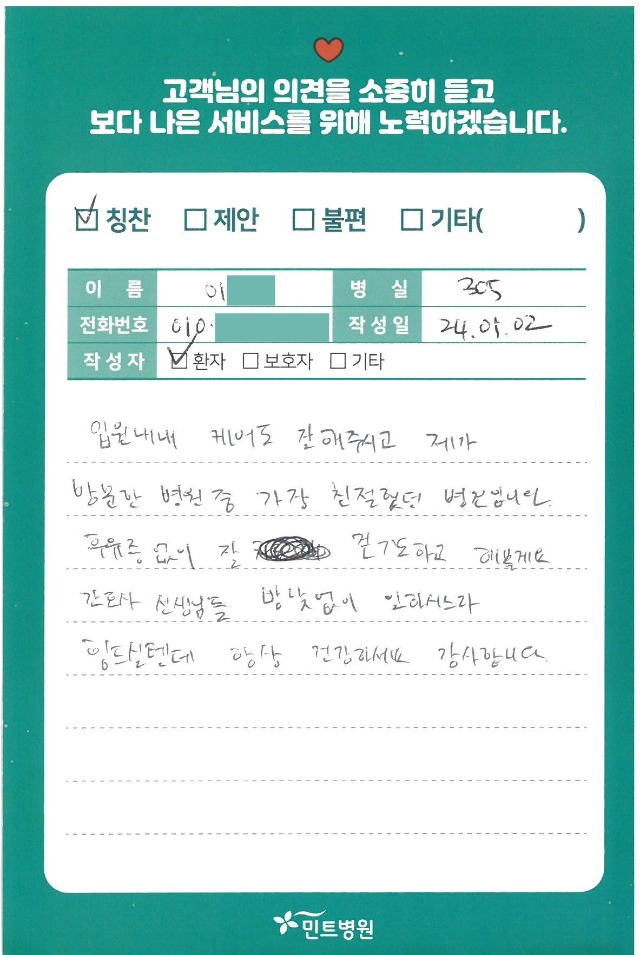 고객님의 의견을 소중히 듣고
보다 나은 서비스를 위해 노력하겠습니다.
칭찬 제안 불편 기타( )
이 름 이 병 실 305
전화번호 010. 작성일 24.01.02
작성자 환자 보호자 기타
입원내내 케어도 잘해주시고 제가
방문한 병원중 가장 친절했던 병원입니다.
후유증없이 잘 걷기도하고 해볼게요
간호사 선생님들 밤낮없이 일하시느라
힘드실텐데 항상 건강하세요 감사합니다.
민트병원